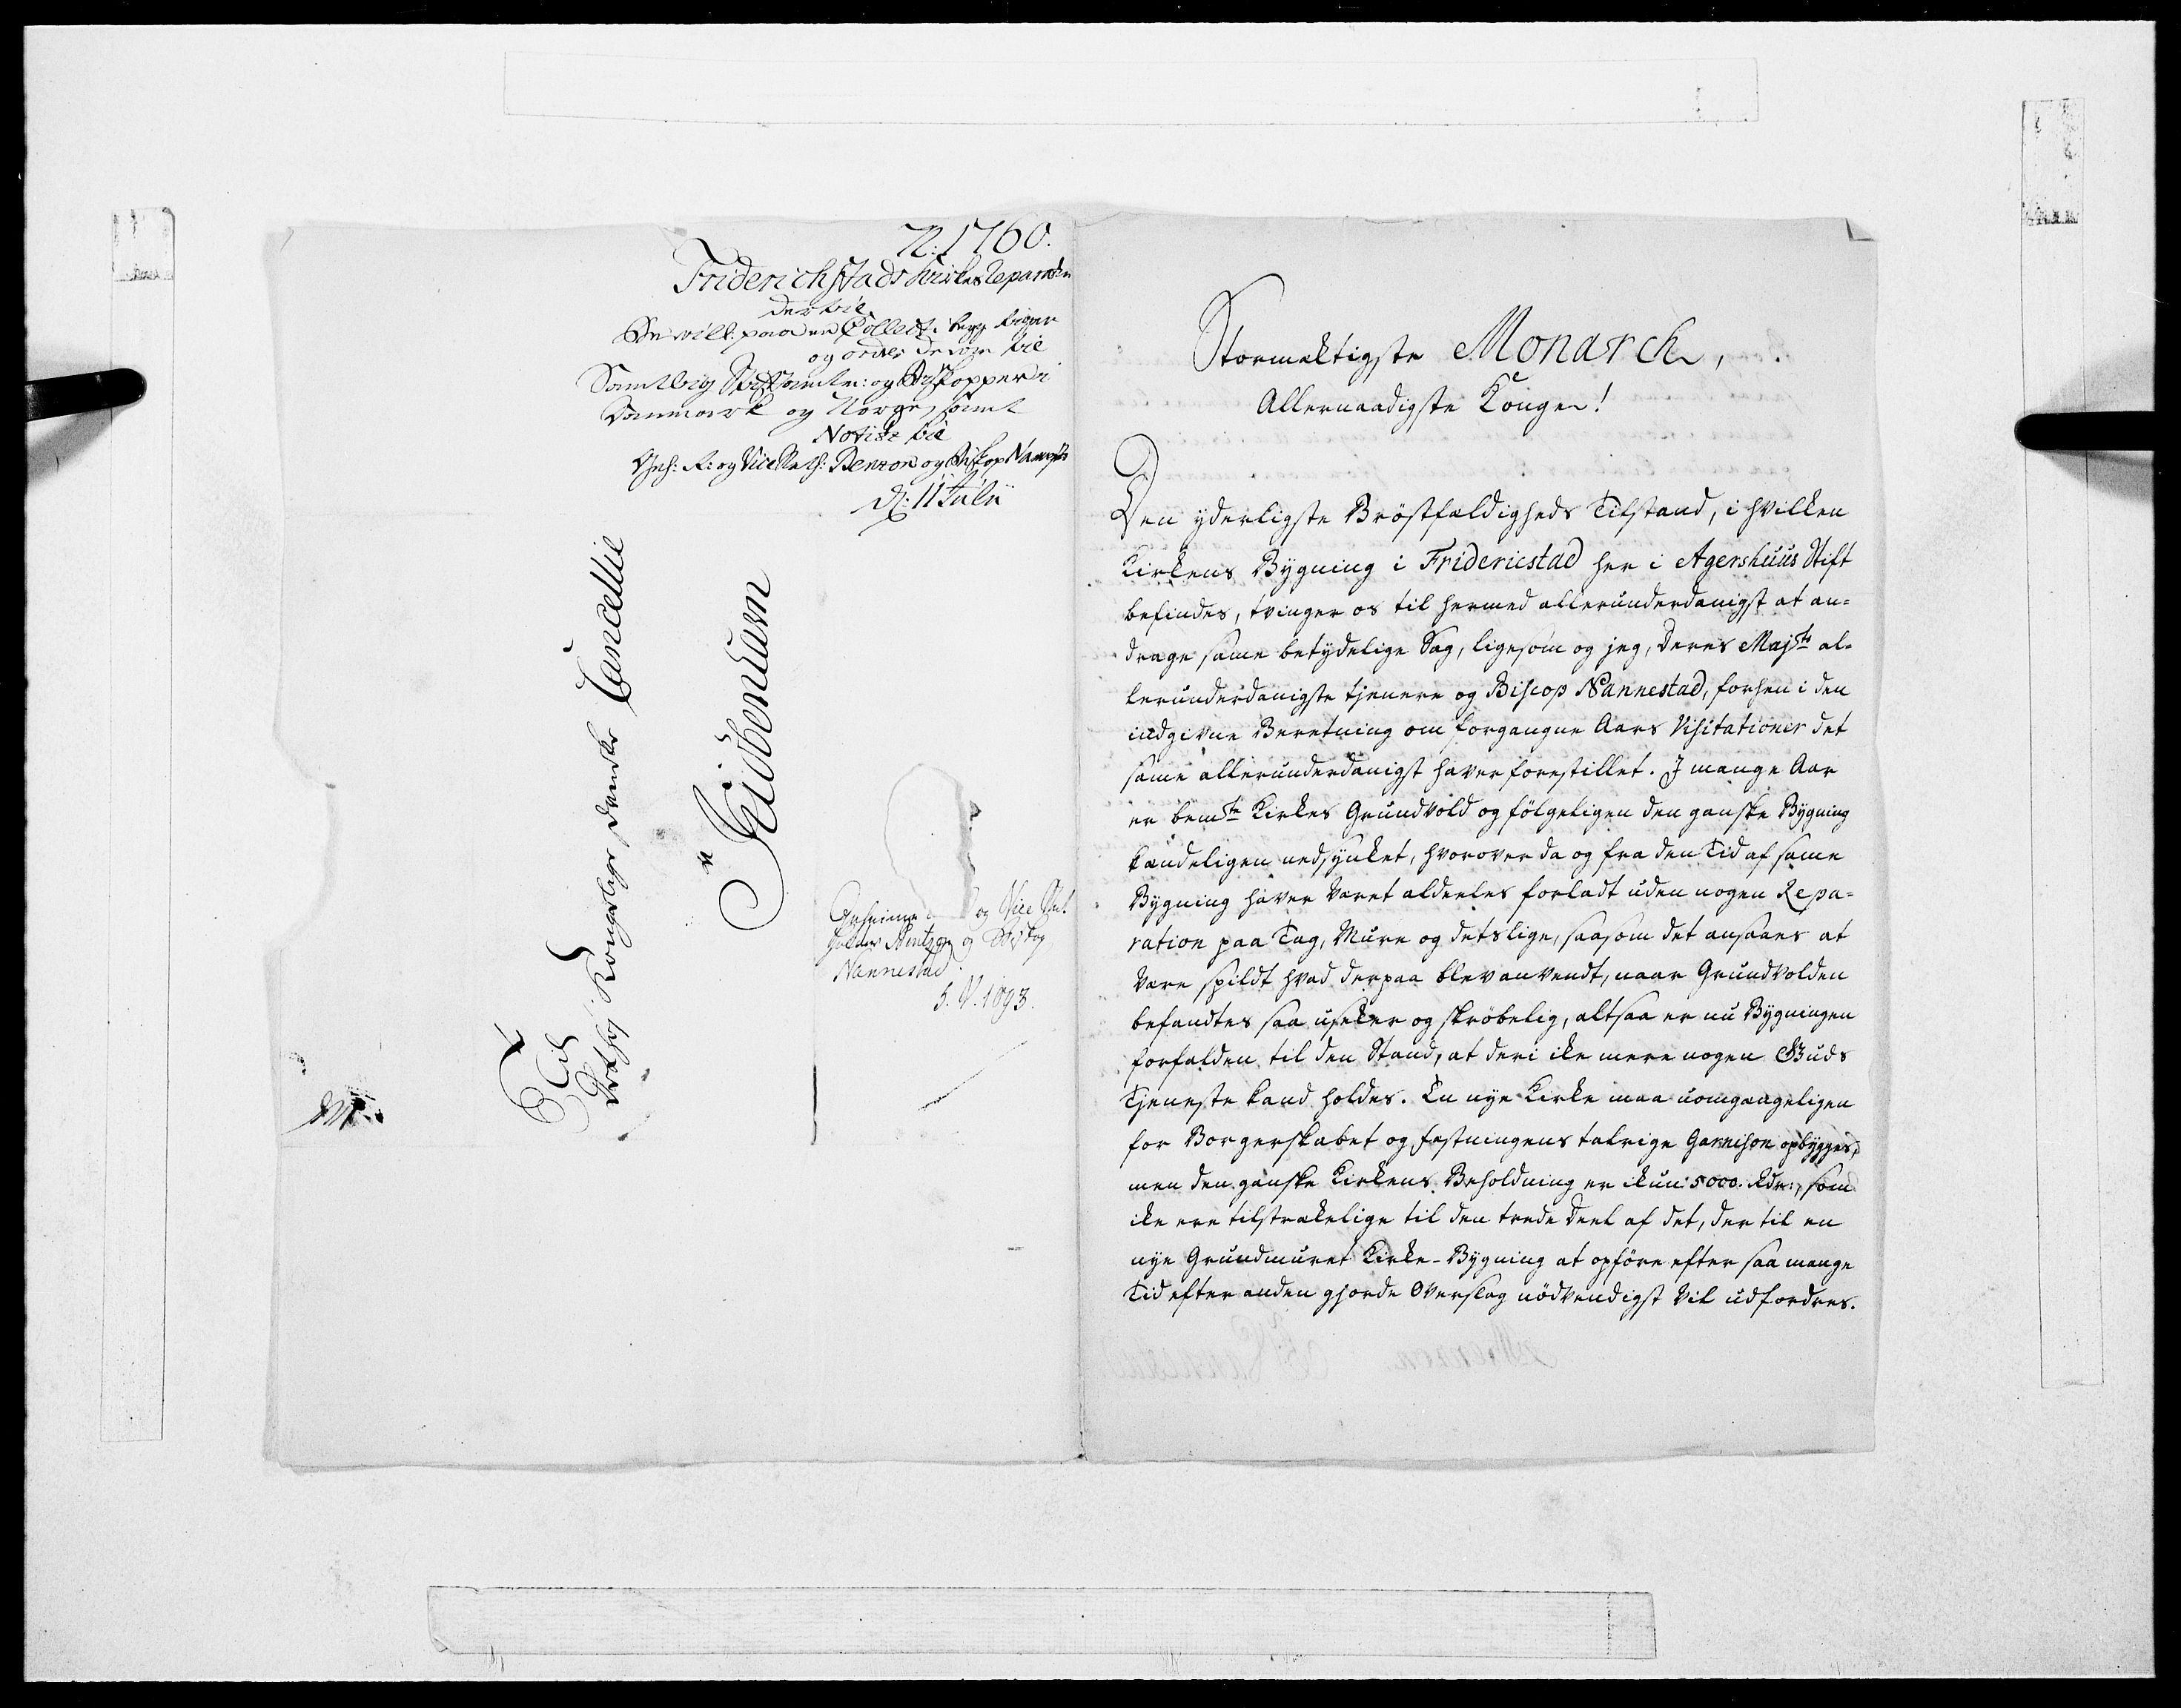 N: 1760.
Friderichstads Kirkes Reparation
Bevill: paa en Collect i begge Riger
og ordre derom til
Samtlig Stiftamtm: og Biskopper i
Danmark og Norge, samt
Notice til
Geh: R: og Vice Stath: Benzon og Biskop Nannestad
d: 11 Julii
Til
Det høj Kongelige Danske Cancellie
Geheime og Vice Stat-
holder Bentzon og Biskop
Nannestad.
S. V. 1093.
Stormektigste Monarch,
Allernaadigste Konge!
Den yderligste Brøstfældigheds Tilstand, i hvilken
Kirkens Bygning i Fridericstad her i Agershuus Stift
befindes, tvinger os til hermed allerunderdanigst at an-
drage samme betydelige Sag, ligesom og jeg, Deres Majts al-
lerunderdanigste tjenere og Biscop Nannestad, forhen i den
indgivne Beretning om forgangne Aars Visitationer det
samme allerunderdanigst haver forestillet. I mange Aar
er bemte Kirkes Grundvold og følgeligen den ganske Bygning
kiendeligen nedsynket, hvorover da og fra den Tid af samme
Bygning haver været aldeeles forladt uden nogen Repa-
ration paa Tag, Mure og detslige, saasom det ansaaes at
være spildt hvad derpaa blev anvendt, naar Grundvolden
befandtes saa usiker og skrøbelig, altsaa er nu Bygningen
forfalden til den Stand, at deri ike mere nogen Guds
Tjeneste kand holdes. En nye Kirke maa uomgaaengeligen
for Borgerskabet og Festningens talrige Garnison opbygges,
men den ganske Kirkens Beholdning er ikun 5000. Rdr:, som
ike ere tilstrækelige til den trede Deel af det, der til en
nye Grundmuret Kirke-Bygning at opføre efter saa mange
Tid efter anden gjorde Overslag nødvendigst vil udfordres.